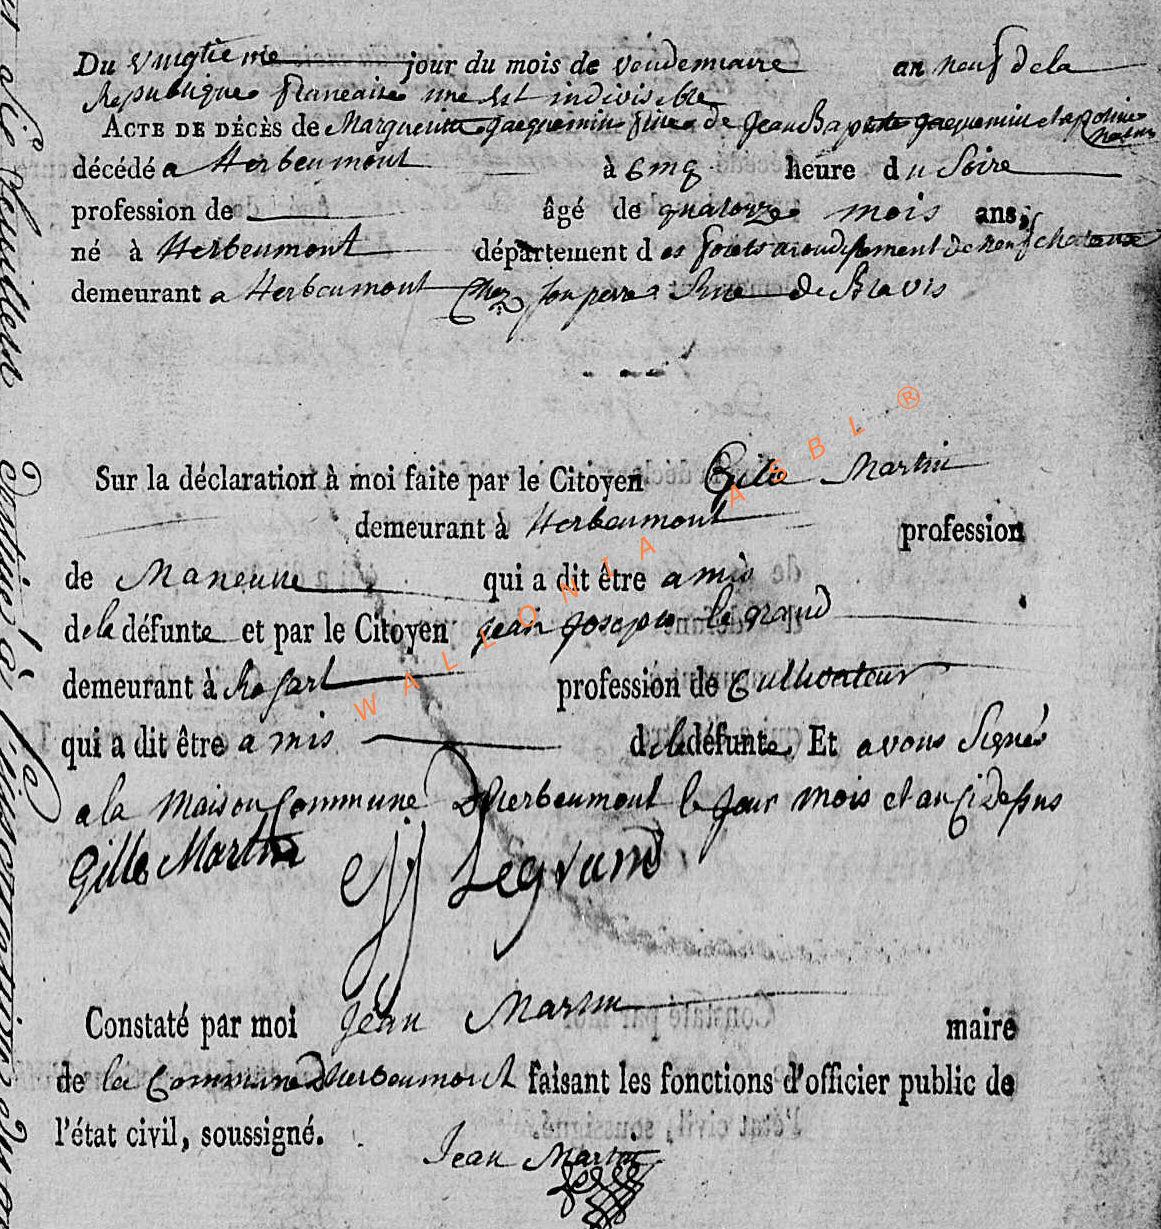 Du vingtieme jour du mois de vendemiaire an neuf dela
Republique francaise une est indivisible
ACTE DE DÉCÈS de Marguerite Jacquemin fille de Jean Baptiste Jacquemin et apoline
décédé a Herbeumont à Cinq heure du Soire
profession de âgé de quatorze mois ans,
né à Herbeumont département des forets arondisement de neufchateaux
demeurant a Herbeumont Chez son pere Rue de
Sur la déclaration à moi faite par le Citoyen Gille Martin
demeurant à Herbeumont profession
de Maneuvre qui a dit être amis
dela défunte et par le Citoyen jean joseph le grand
demeurant à profession de Cultivateur
qui a dit être amis dela défunte, Et avons Signés
a la Maison Commune Dherbeumont le jour mois et an Cidessus
Gille Martin JJ Legrand
Constaté par moi Jean Martin maire
de la Commune Dherbeumont faisant les fonctions d'officier public de
l'état civil, soussigné.
Jean Martin
WALLONIA ASBL ®